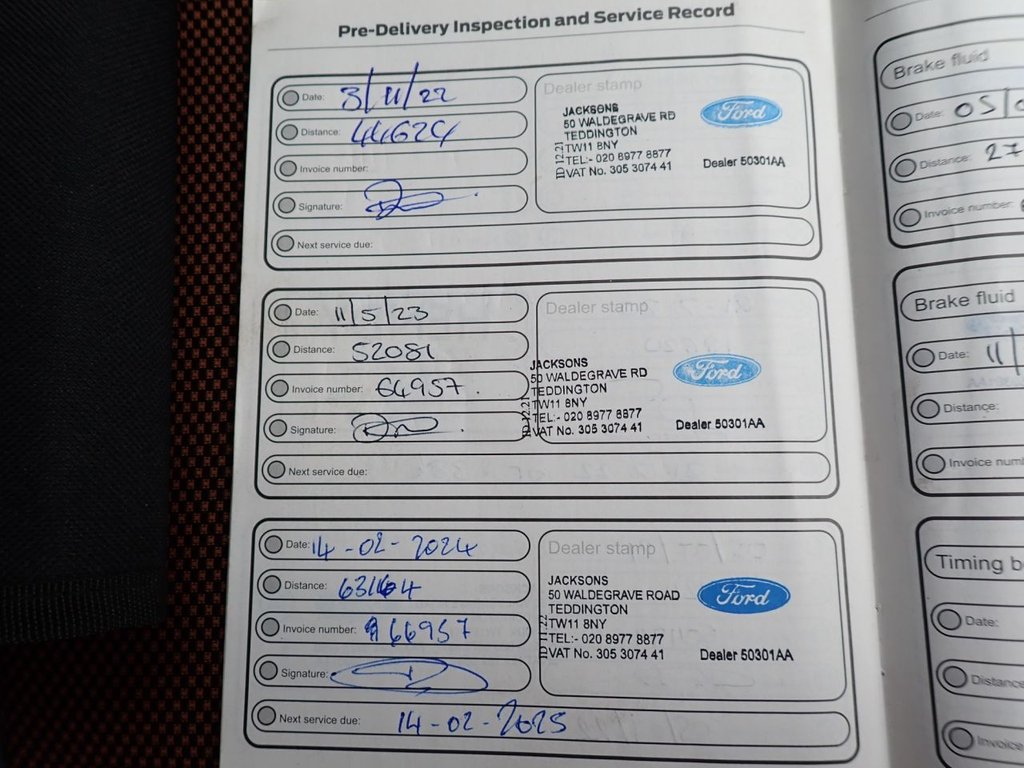 Pre-Delivery Inspection and Service Record
Date: 3/11/22
Distance: 44624
Invoice number:
Signature:
Next service due:
Dealer stamp
JACKSONS
50 WALDEGRAVE RD
TEDDINGTON
TW11 8NY
TEL:- 020 8977 8877
VAT No. 305 3074 41
ID 12.21
Ford
Dealer 50301AA
Date: 11/5/23
Distance: 52081
Invoice number: 64957.
Signature:
Next service due:
Dealer stamp
JACKSONS
50 WALDEGRAVE RD
TEDDINGTON
TW11 8NY
TEL:- 020 8977 8877
VAT No. 305 3074 41
ID 12.21
Ford
Dealer 50301AA
Date: 14-02-2024
Distance: 63164
Invoice number: 66957
Signature:
Next service due: 14-02-2025
Dealer stamp
JACKSONS
50 WALDEGRAVE ROAD
TEDDINGTON
TW11 8NY
TEL:- 020 8977 8877
VAT No. 305 3074 41
ID 11.22
Ford
Dealer 50301AA
Brake fluid
Date: 05/
Distance: 27
Invoice number:
Brake fluid
Date: 11/
Distance:
Invoice num
Timing b
Date:
Distance
Invoice